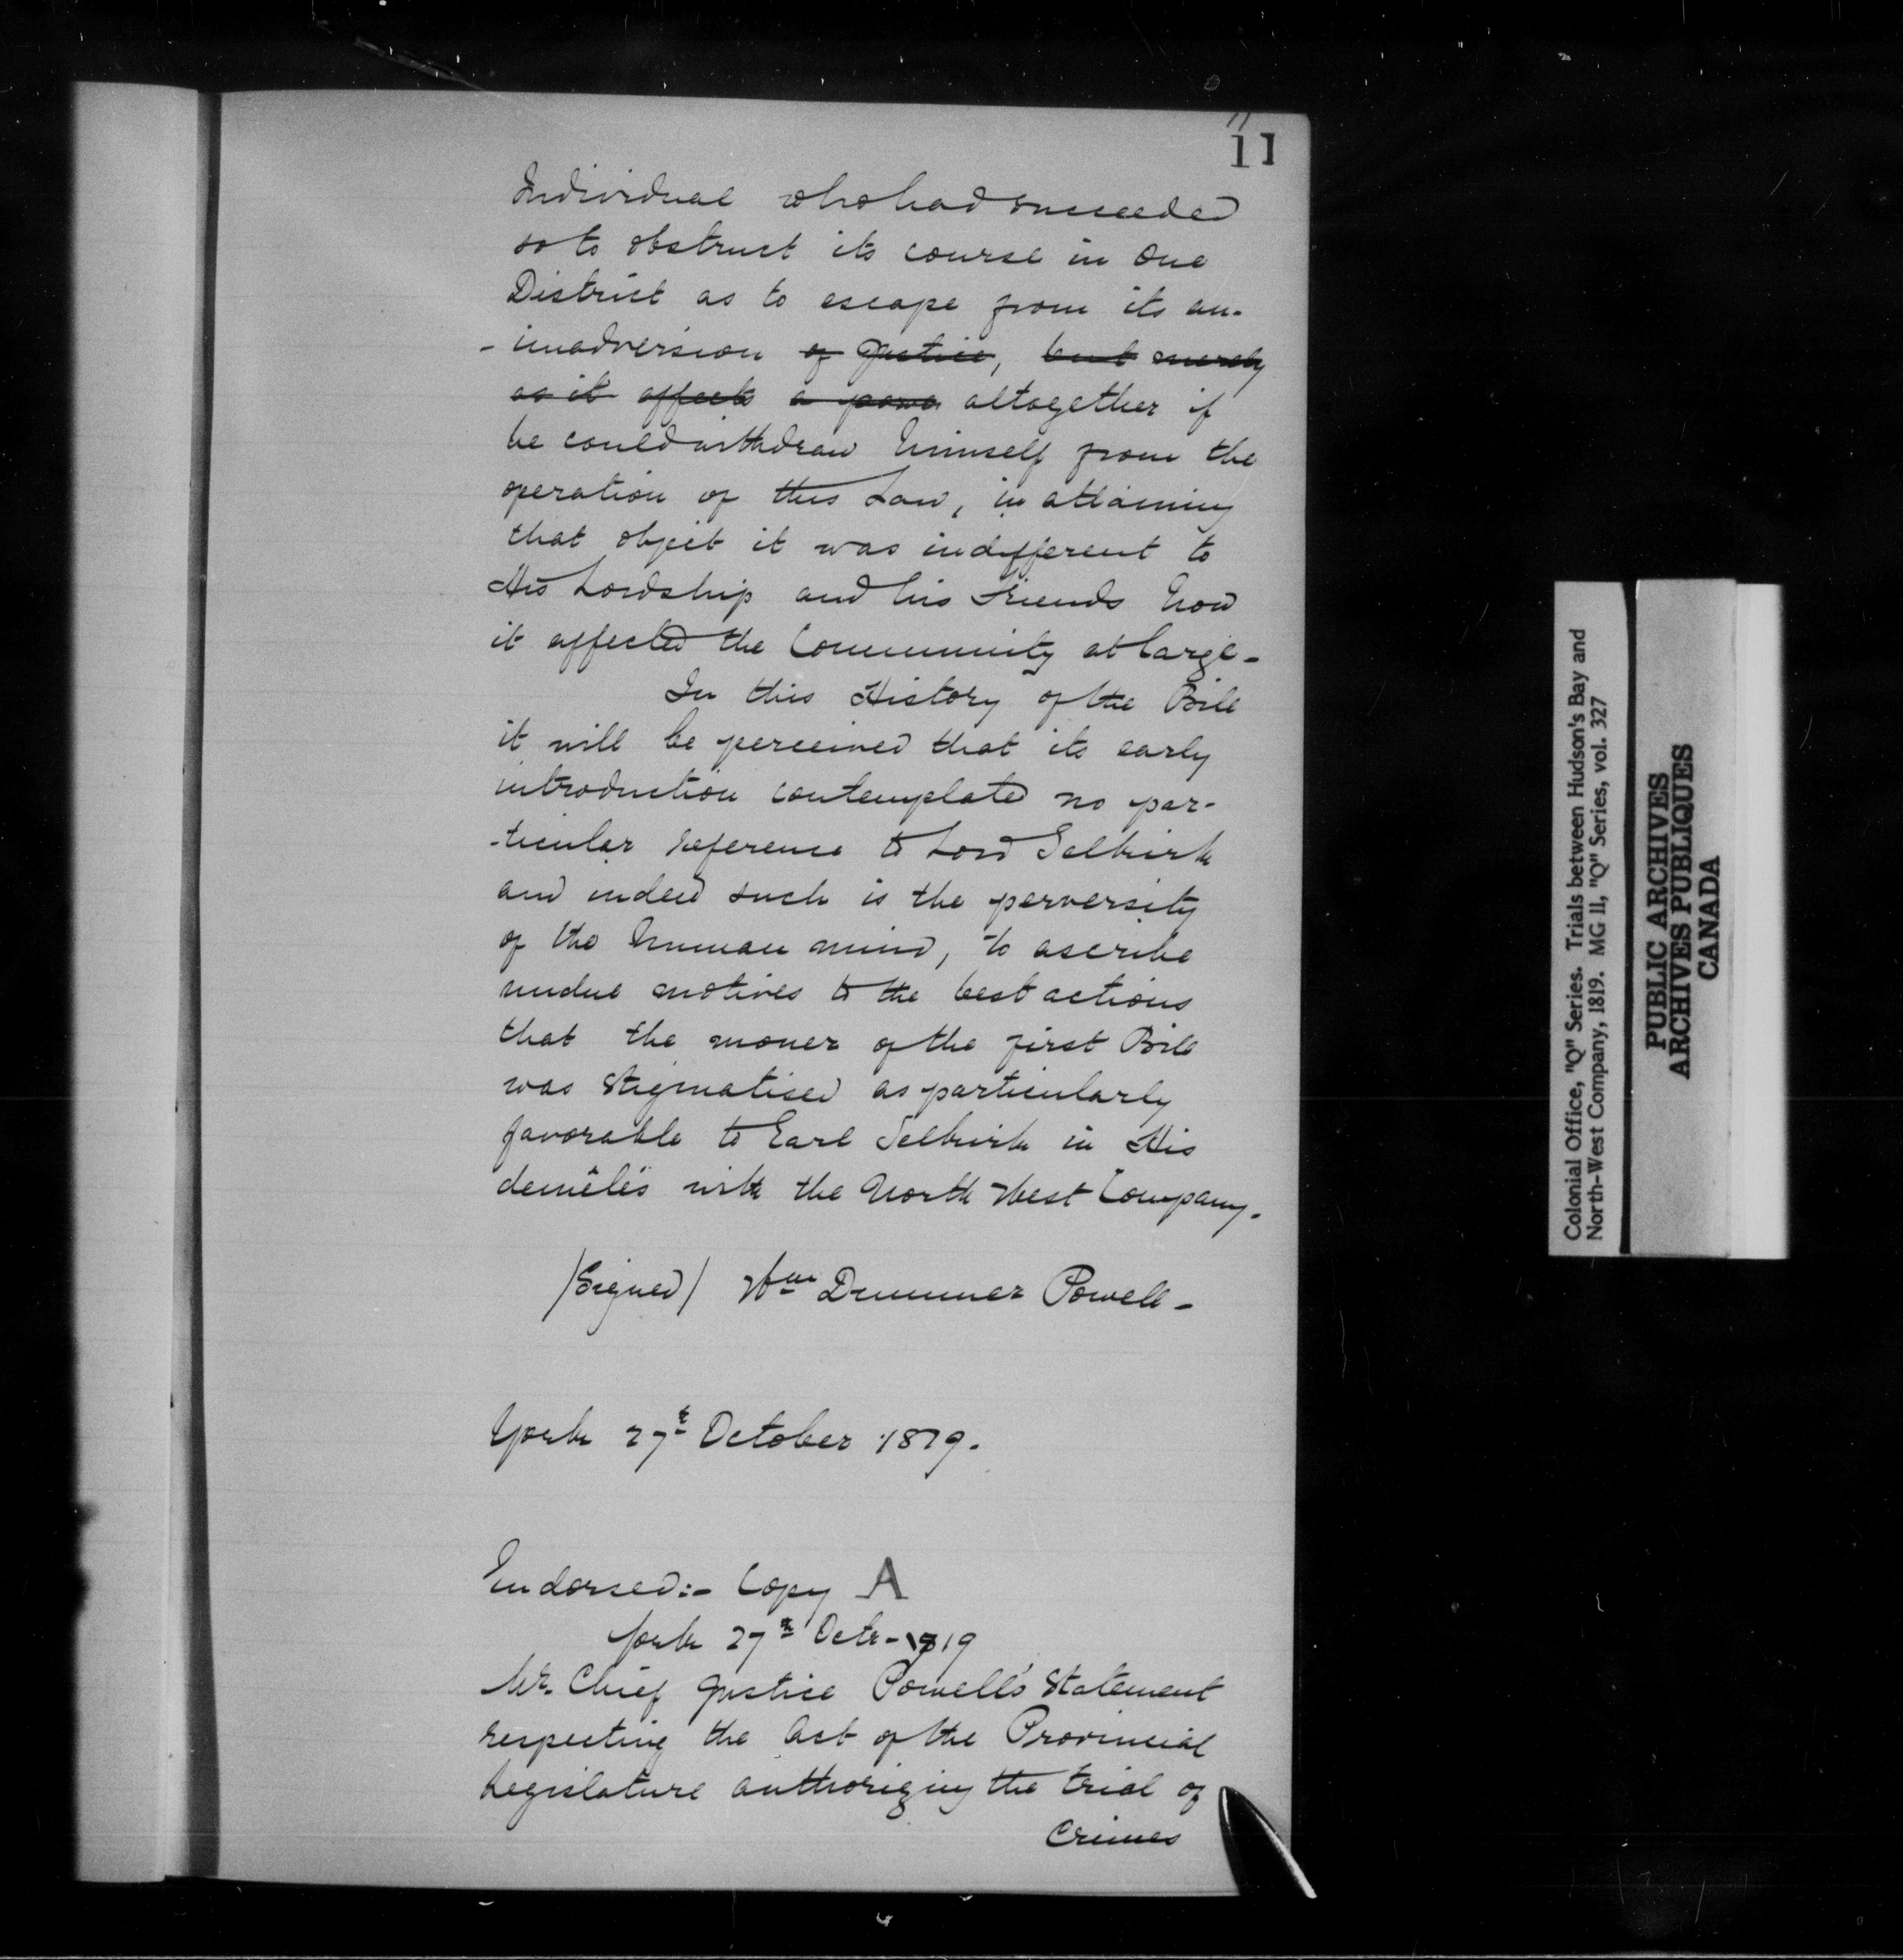 11
11
Individual who had succeeded
so to obstruct its course in one
District as to escape from its an-
-imadversion of Justice, but merely
as it affects a powe altogether if
he could withdraw himself from the
operation of this Law, in attaining
that object it was indifferent to
His Lordship and his Friends how
it affected the Community at large -
In this History of the Bill
it will be perceived that its early
introduction contemplated no par-
-ticular reference to Lord Selkirk
and indeed such is the perversity
of the human mind, to ascribe
undue motives to the best actions
that the mover of the first Bill
was stigmatised as particularly
favorable to Earl Selkirk in His
demêlés with the North West Company.
/Signed/ Wm Dummer Powell -
York 27th October 1819.
Endorsed:- Copy A
York 27th Octr - 1819
Mr. Chief Justice Powell's Statement
respecting the Act of the Provincial
Legislature authorizing the trial of
Crimes
Colonial Office, "Q" Series. Trials between Hudson's Bay and
North-West Company, 1819. MG 11, "Q" Series, vol. 327
PUBLIC ARCHIVES
ARCHIVES PUBLIQUES
CANADA